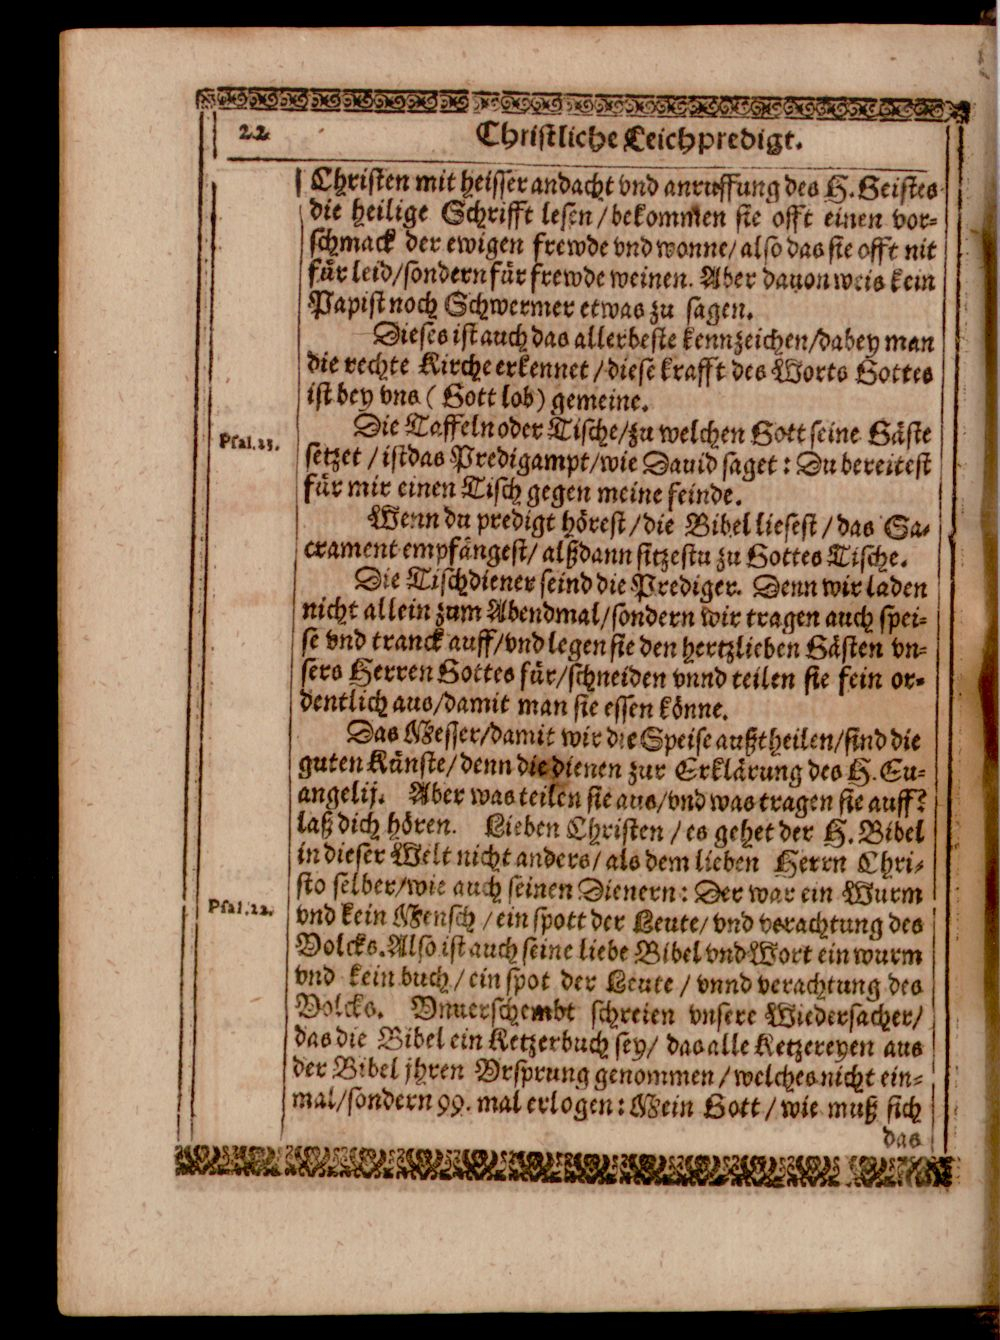 22 Christliche Leichpredigt.
Christen mit heisser andacht vnd anruffung des H. Geistes
die heilige Schrifft lesen / bekommen sie offt einen vor-
schmack der ewigen frewde vnd wonne / also das sie offt nit
für leid / sondern für frewde weinen. Aber dauon weis kein
Papist noch Schwermer etwas zu sagen.
Dieses ist auch das allerbeste kennzeichen / dabey man
die rechte Kirche erkennet / diese krafft des Worts Gottes
ist bey vns ( Gott lob ) gemeine.
Die Taffeln oder Tische / zu welchen Gott seine Gäste
Psal. 23.
setzet / ist das Predigampt / wie Dauid saget : Du bereitest
für mir einen Tisch gegen meine feinde.
Wenn du predigt hörest / die Bibel liesest / das Sa-
crament empfängest / alßdann sitzestu zu Gottes Tische.
Die Tischdiener seind die Prediger. Denn wir laden
nicht allein zum Abendmal / sondern wir tragen auch spei-
se vnd tranck auff / vnd legen sie den hertzlieben Gästen vn-
sers Herren Gottes für / schneiden vnnd teilen sie fein or-
dentlich aus / damit man sie essen könne.
Das Messer / damit wir die Speise außtheilen / sind die
guten Künste / denn die dienen zur Erklärung des H. Eu-
angelij. Aber was teilen sie aus / vnd was tragen sie auff?
laß dich hören. Lieben Christen / es gehet der H. Bibel
in dieser Welt nicht anders / als dem lieben Herrn Chri-
sto selber / wie auch seinen Dienern : Der war ein Wurm
Psal. 22.
vnd kein Mensch / ein spott der Leute / vnd verachtung des
Volcks. Also ist auch seine liebe Bibel vnd Wort ein wurm
vnd kein buch / ein spot der Leute / vnnd verachtung des
Volcks. Vnuerschembt schreien vnsere Wiedersacher /
das die Bibel ein Ketzerbuch sey / das alle Ketzereyen aus
der Bibel jhren Vrsprung genommen / welches nicht ein-
mal / sondern 99. mal erlogen : Mein Gott / wie muß sich
das